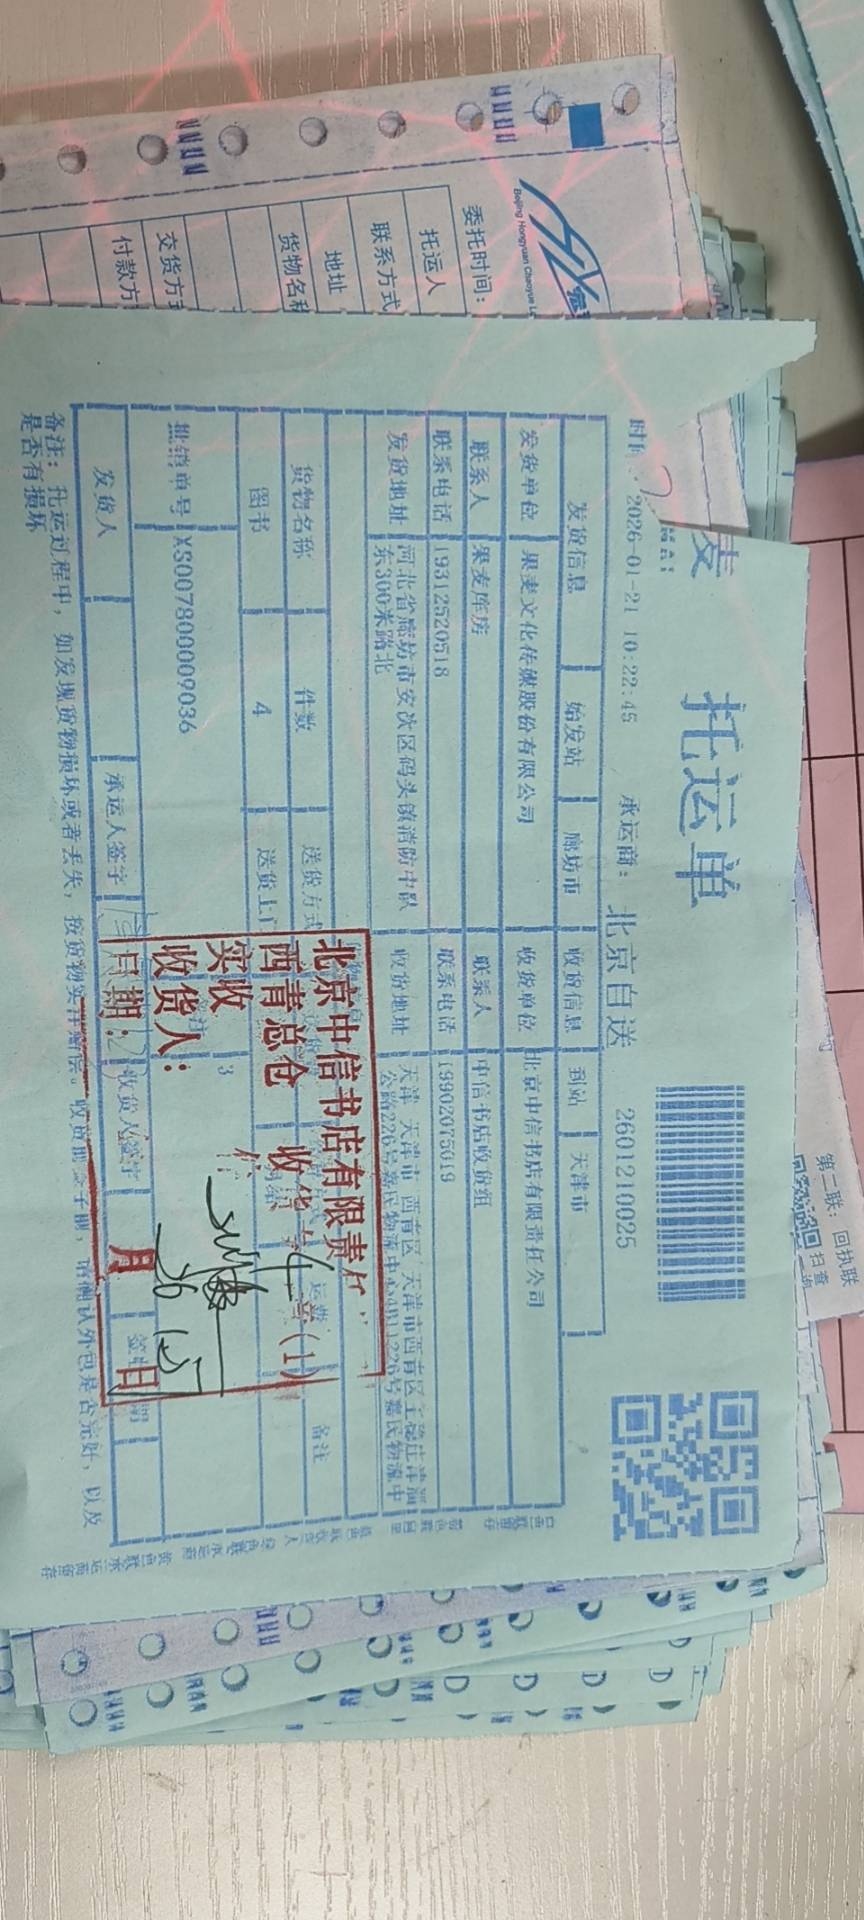 Beijing Hongyuan Chaoyue
委托时间:
托运人
联系方式
地址
货物名称
交货方式
付款方
第二联: 回执联
扫查
托运单
时间 2026-01-21 10:22:45 承运商: 北京自送 2601210025
发货信息 始发站 廊坊市 收货信息 到站 天津市
发货单位 果麦文化传媒股份有限公司 收货单位 北京中信书店有限责任公司
联系人 果麦库房 联系人 中信书店收货组
联系电话 19312520518 联系电话 19902075019
发货地址 河北省廊坊市安次区码头镇消防中队东300米路北 收货地址 天津 天津市 西青区
货物名称 件数 送货方式 运费 备注
图书 4 送货上门
批销单号 XS007800009036 3
发货人 承运人签字 收货人签字
备注: 托运过程中, 如发现货物损坏或者丢失, 按货物实洋赔偿。收货前 签字前, 请确认外包是否完好, 以及
是否有损坏
北京中信书店有限责任
西青总仓 收货专 章(1)
实收
收货人:
日期: 月 日